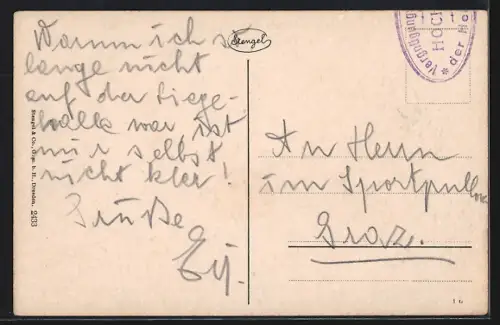 Warum ich so
lange nicht
auf der Liege-
halle war ist
mir selbst
nicht klar!
Grüße
Stengel
Stengel & Co., G. m. b. H., Dresden. 2433
Vergnügung
HOCH
* der
An Herrn
im Sportpull
Graz.